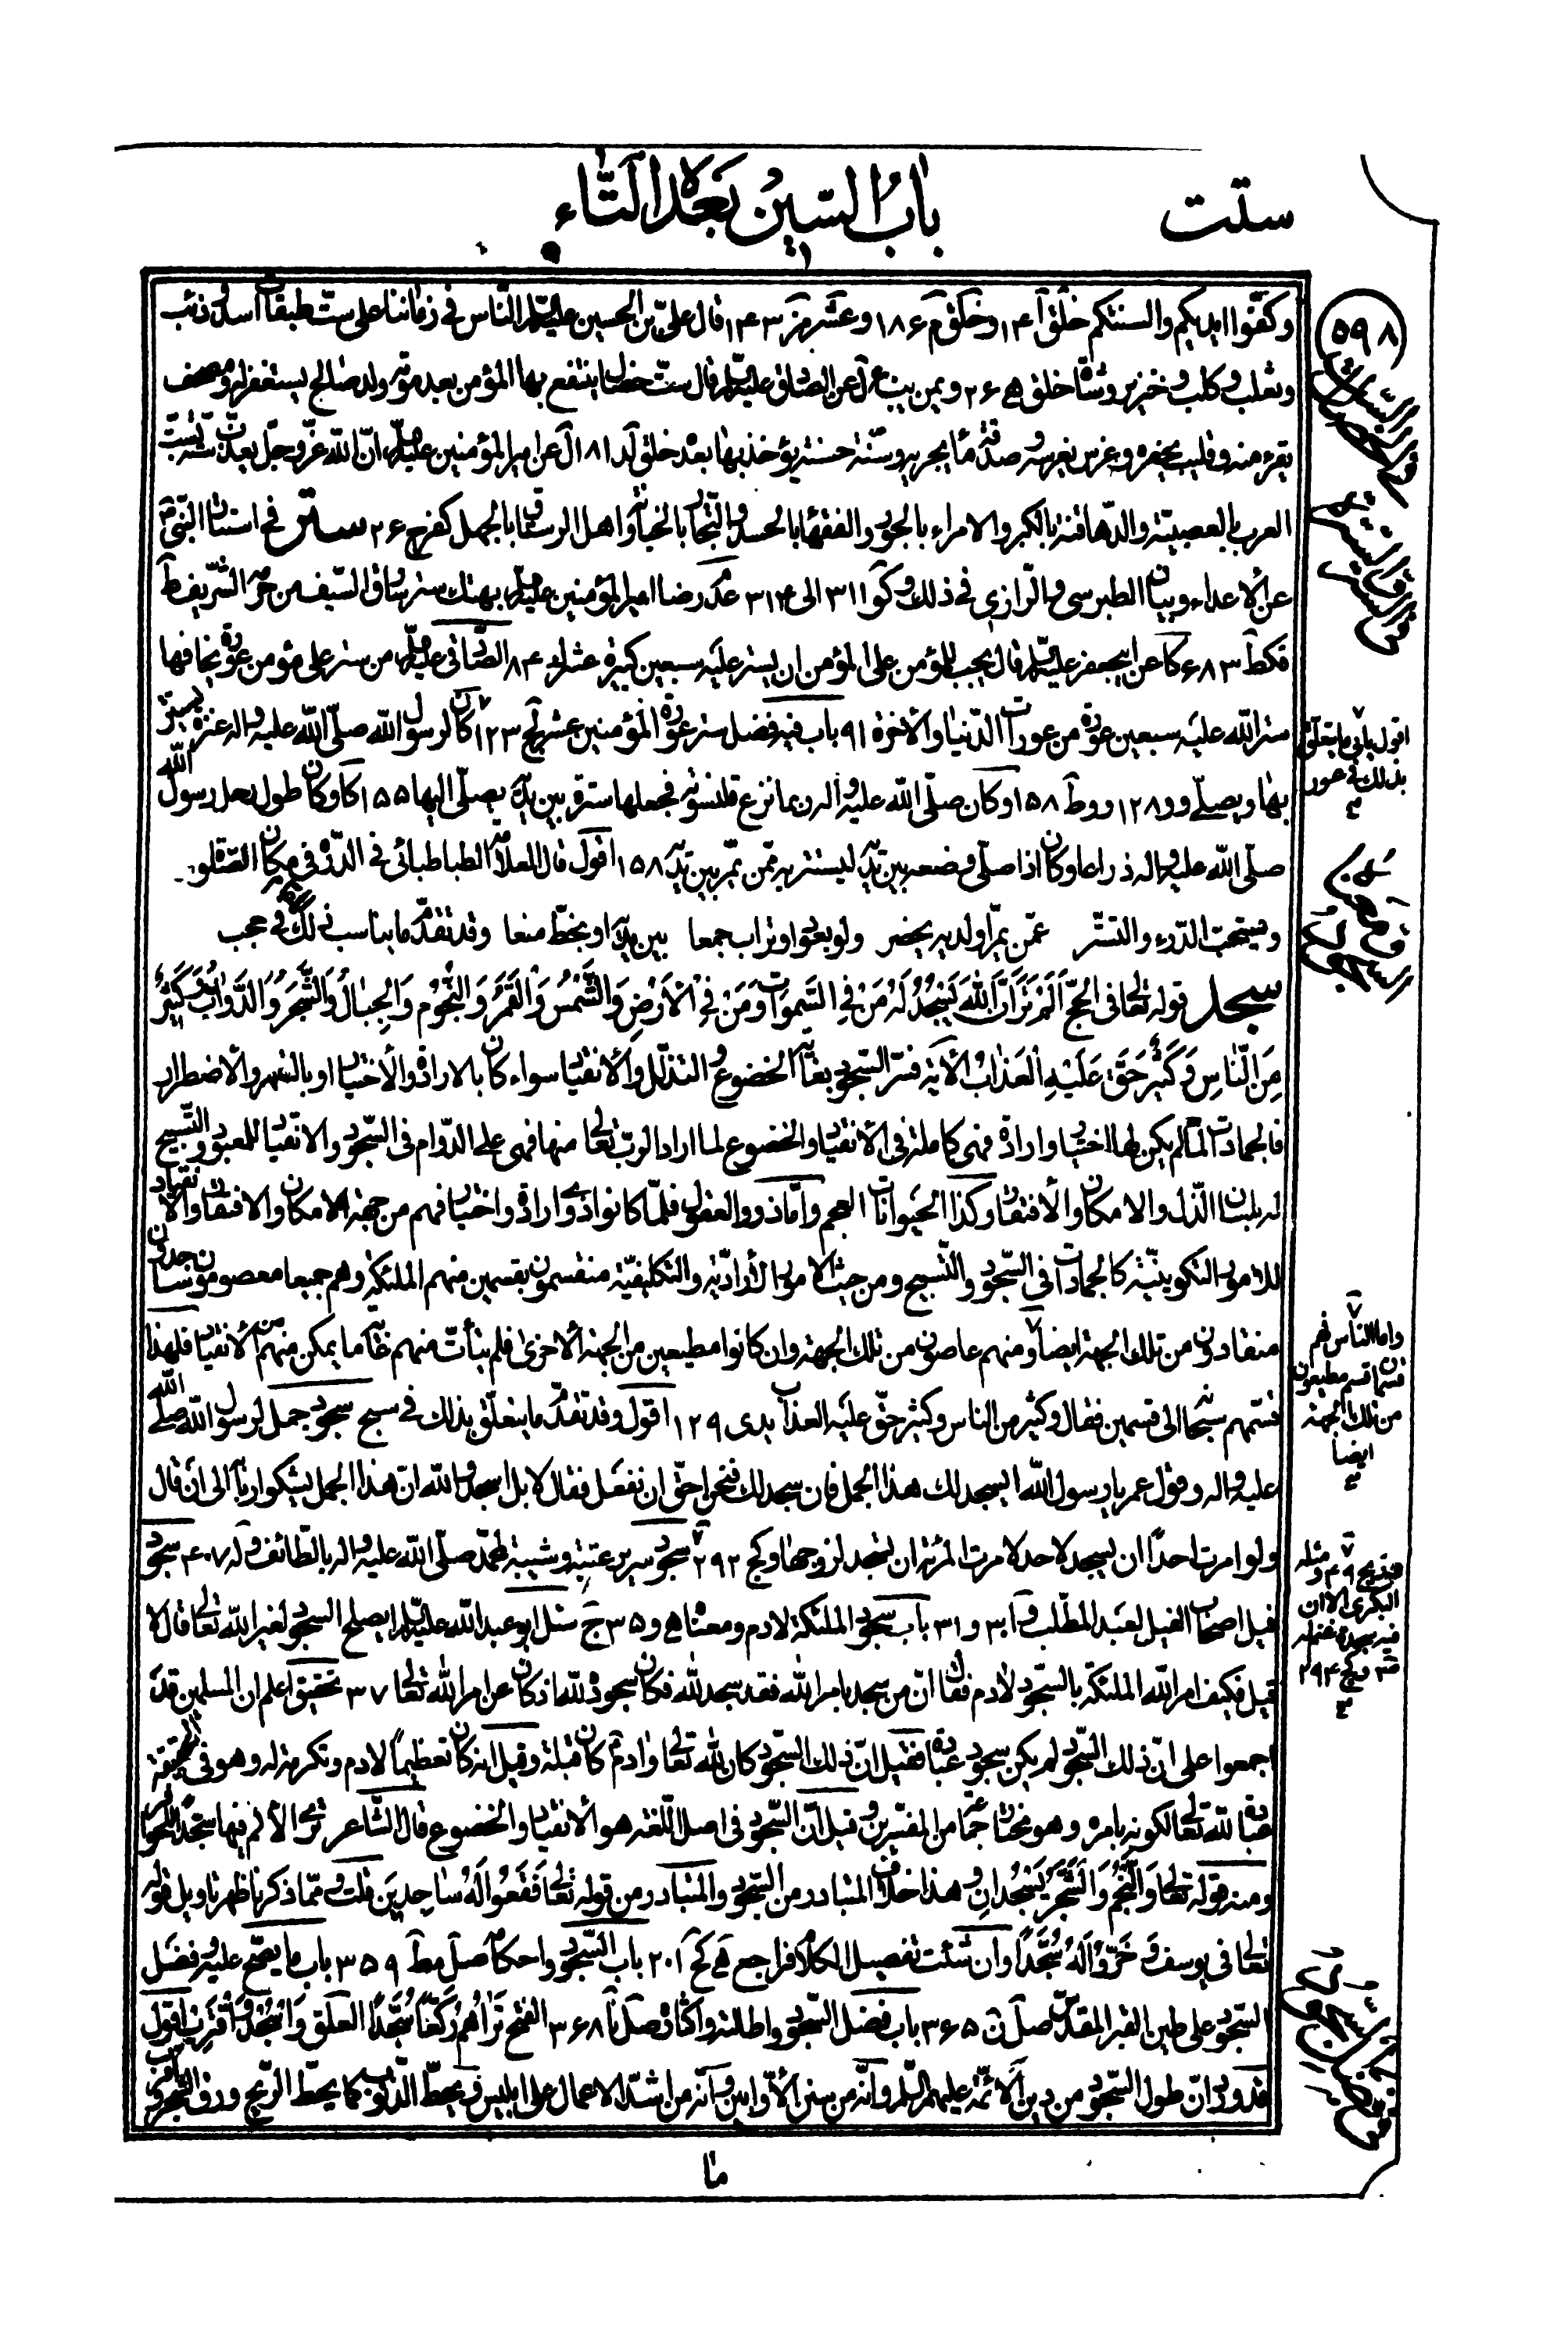 ستت
باب السّين بعده التّاء
٥٩٨
وكفّوا ايديكم والسنتكم خلق آ ١۴ وخلق م ١٨۶ وعشر مز ١۴٣ قال علىّ بن الحسين عليه السّلم النّاس في زماننا على ستّ طبقات اسد وذئب
وثعلب وكلب وخنزير وشاة خلق ه ٢۶ ويمن يب عن الصّادق عليه السّلم قال ستّ خصال ينتفع بها المؤمن بعد موته ولد صالح يستغفر له ومصحف
يقرء منه وقليب يحفره وغرس يغرسه وصدقة ماء يجريه وسنّة حسنة يؤخذ بها بعده خلق لد ١٨١ ل عن امير المؤمنين عليه السّلم انّ الله عزّ وجلّ يعذّب ستّة بستّة
العرب بالعصبيّة والدّهاقنة بالكبر والامراء بالجور والفقهاء بالحسد والتّجار بالخيانة واهل الرستاق بالجهل كفر ج ٢۶ ستر في استتار النّبيّ
عن الاعداء وبيان الطبرسى والرّازي في ذلك وكو ٣١١ الى ٣١۴ عدم رضا امير المؤمنين عليه السّلم بهتك ستر بباق السّيف من حرمه الشّريف ط
فكط ۶٨٣ كا عن ابيجعفر عليه السّلم قال يجب للمؤمن على المؤمن ان يستر عليه سبعين كبيرة عشر له ٨۴ الصّادق عليه السّلم من ستر على مؤمن عورة يخافها
ستر الله عليه سبعين عورة من عورات الدّنيا والاخرة ٩١ باب فيه فضل ستر عورة المؤمنين عشر لح ١٢٣ كان لرسول الله صلّى الله عليه واله عنزة يستتر
بها ويصلّى وو ١٢٨ و وط ١٥٨ وكان صلّى الله عليه واله ربما نزع قلنسوته فجعلها سترة بين يديه يصلّى اليها ١٥٥ كا وكان طول رحل رسول الله
صلّى الله عليه واله ذراعا وكان اذا صلّى وضعه بين يديه ليستتر به ممّن يمرّ بين يديه ١٥٨ اقول قال العلامة الطباطبائى في الدّرّة في مكان الصّلوة
ويستحبّ الدّرء والتستّر عمّن يمرّ او لديه يحضر ولو بعود او تراب جمعا بين يديه او بخطّ منعا وقد تقدّم ما يناسب ذلك في حجب
سجد قوله تعالى في الحجّ اَلَمْ تَرَ اَنَّ اللهَ يَسْجُدُ لَهُ مَنْ فِي السَّمواتِ وَمَنْ فِي الْاَرْضِ وَالشَّمْسُ وَالْقَمَرُ وَالنُّجُومُ وَالْجِبالُ وَالشَّجَرُ وَالدَّوابُّ وَكَثيرٌ
مِنَ النّاسِ وَكَثيرٌ حَقَّ عَلَيْهِ الْعَذابُ الاية فسّر السّجود بغاية الخضوع والتذلّل والانقياد سواء كان بالارادة والاختيار او بالقهر والاضطرار
فالجمادات لمّا لم يكن لها اختيار وارادة فهى كاملة في الانقياد والخضوع لما اراد الربّ تعالى منها فهى على الدّوام في السّجود والانقياد للمعبود والتّسبيح
له بلسان الذّل والامكان والافتقار وكذا الحيوانات العجم وامّا ذوو العقول فلمّا كانوا ذوى ارادة واختيار فهم من جهة الامكان والافتقار والانقياد
للامور التكوينيّة كالجمادات في السّجود والتّسبيح ومن حيث الامور الاراديّة والتكليفيّة منقسمون بقسمين منهم الملئكة وهم جميعا معصومون ساجدون
منقادون من تلك الجهة ايضا ومنهم عاصون من تلك الجهة وان كانوا مطيعين من الجهة الاخرى فلم يتأتّ منهم غاية ما يمكن منهم من الانقياد فلهذا
قسّمهم سبحانه الى قسمين فقال وكثير من الناس وكثير حقّ عليه العذاب يدى ١٢٩ اقول وقد تقدّم ما يتعلّق بذلك في سبح سجود جمل لرسول الله صلّى الله
عليه واله وقول عمر يا رسول الله ايسجد لك هذا الجمل فان سجد لك فنحن احقّ ان نفعل فقال لا بل اسجدوا لله انّ هذا الجمل يشكو اربابه الى ان قال
ولو امرت احدًا ان يسجد لاحد لامرت المرئة ان تسجد لزوجها وكج ٢٩٢ سجود سرير عتبة وشيبة لمحمّد صلّى الله عليه واله بالطّائف وله ۴٠٧ سجود
فيل اصحاب الفيل لعبد المطّلب و آ ٣٠ و ٣١ باب سجود الملئكة لادم ومعناه ه و ٣٥ ج سئل ابو عبد الله عليه السّلم ايصلح السجود لغير الله تعالى قال لا
قيل فكيف امر الله الملئكة بالسّجود لادم فقال انّ من سجد بامر الله فقد سجد لله فكان سجوده لله اذ كان عن امر الله تعالى ٣٧ تحقيق اعلم ان المسلمين قد
اجمعوا على انّ ذلك السّجود لم يكن سجود عبادة فقيل انّ ذلك السّجود كان لله تعالى وادم كان قبلة وقيل انه كان تعظيمًا لادم وتكرمة له وهو في الحقيقة
عبادة لله تعالى لكونه بامره وهو مختار جماعة من المفسّرين وقيل انّ السّجود في اصل اللّغة هو الانقياد والخضوع قال الشّاعر ترى الاكم فيها سجّدًا للحوافر
ومنه قوله تعالى وَالنَّجْمُ وَالشَّجَرُ يَسْجُدانِ وهذا خلاف المتبادر من السّجود والمتبادر من قوله تعالى فَقَعُوا لَهُ ساجِدينَ قلت وممّا ذكرنا ظهر تاويل قوله
تعالى في يوسف وَخَرُّوا لَهُ سُجَّدًا وان شئت تفصيل الكلام فراجع ه كح ٢٠١ باب السّجود واحكامه صل مط ٣٥٩ باب ما يصحّ عليه وفضل
السّجود على طين القبر المقدّس صل ن ٣۶٥ باب فضل السّجود واطالته واكثاره صل نا ٣۶٨ الفتح تَراهُمْ رُكَّعًا سُجَّدًا العلق وَاسْجُدْ وَاقْتَرِبْ اقول
قد ورد انّ طول السّجود من دين الائمّة عليهم السّلم وانّه من سنن الاوّابين وانّه من اشدّ الاعمال على ابليس ويحطّ الذّنوب كما يحطّ الرّيح ورق الشّجر
اقول ياتي ما يتعلّق
بذلك في عور
واما الناس فهم
قسمان قسم مطيعون
من تلك الجهة
ايضا
ما